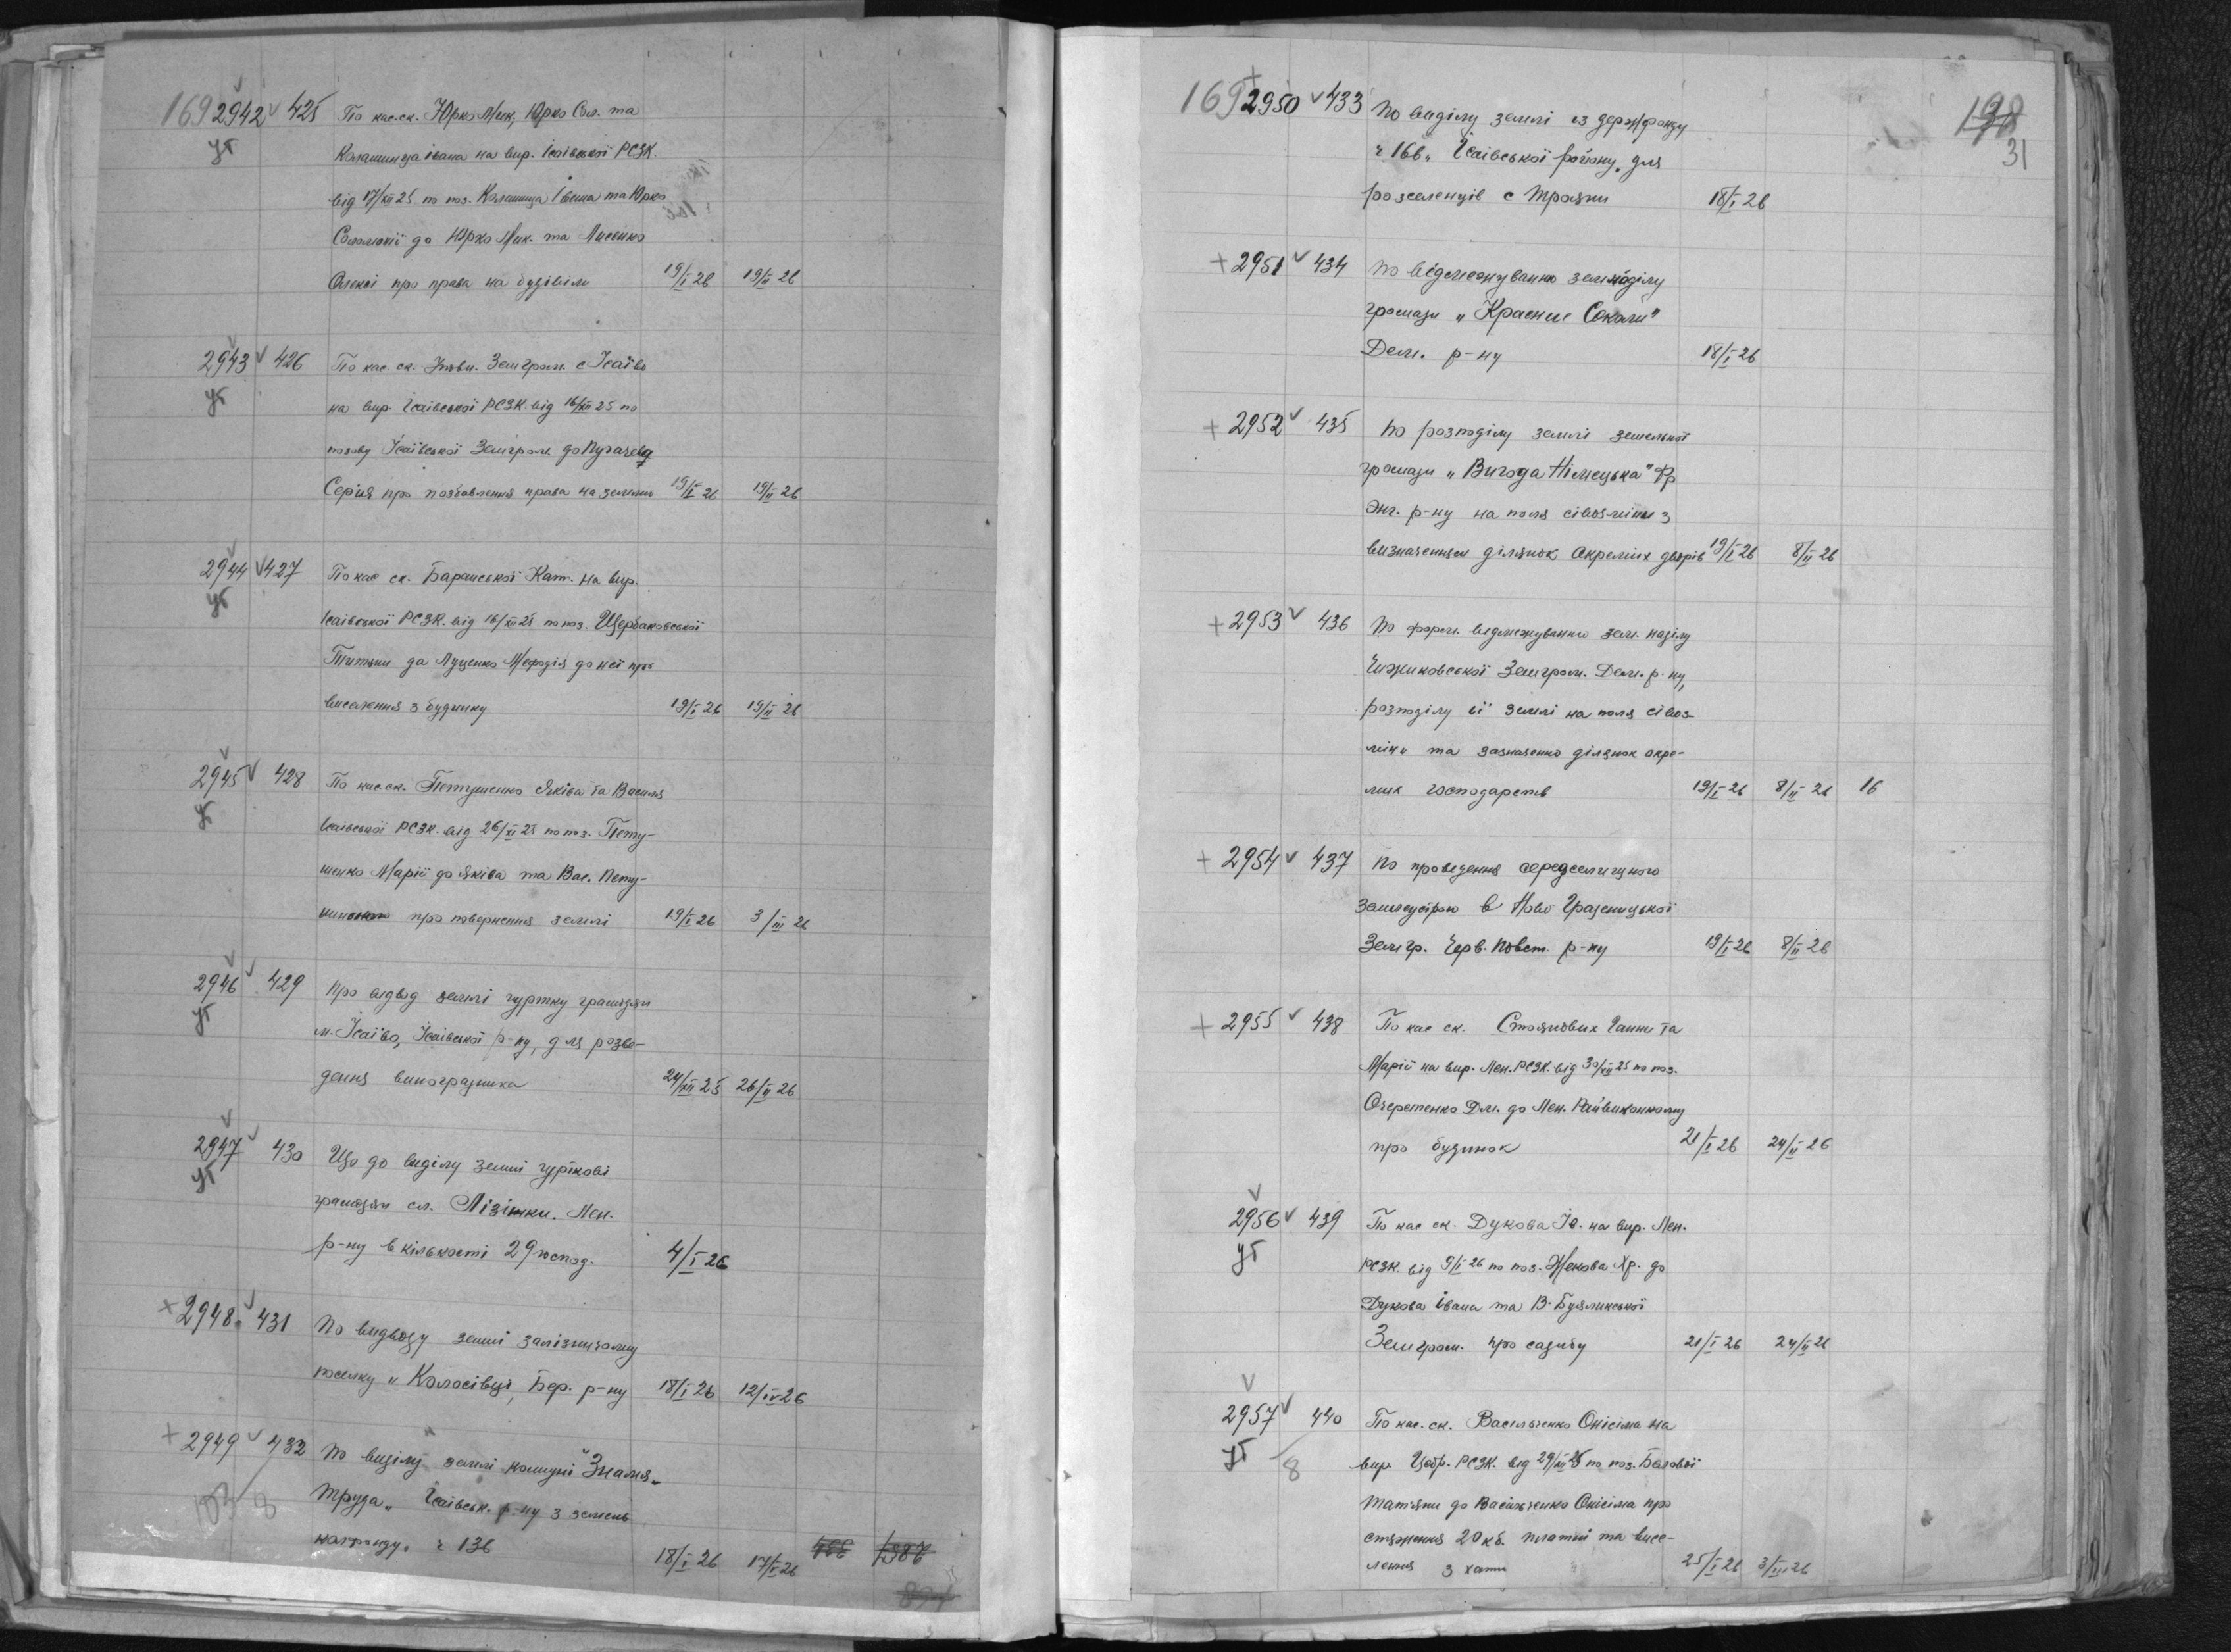 169 2942 v 425 По кас.ск. Юрко Мик, Юрко Сол. та
ут Коломийца Івана на вир. Ісаівської РСЗК.
від 17/XII 25 по поз. Коломийца Івана та Юрко
Соломонії до Юрко Мик. та Лисенко
Олексі про права на будівіли 19/I 26 19/II 26
2943 v 426 По кас. ск. Уповн. Земгром. с Ісаїво
ут на вир. Ісаівської РСЗК. від 16/XII 25 по
позову Ісаївської Земгром. до Пугачева
Сергія про позбавлення права на землю 19/I 26 19/II 26
2944 v 427 По кас ск. Баранської Кат. на вир.
ут Ісаівської РСЗК. від 16/XII 25 по поз. Щербаковської
Титяни да Луценко Мефодія до неї про
виселення з будинку 19/I 26 19/II 26
2945 v 428 По кас.ск. Петушенко Яківа та Василя
ут Ісаівської РСЗК. від 26/XI 25 по поз. Пету-
шенко Марії до Яківа та Вас. Пету-
про повернення землі 19/I 26 3/III 26
2946 v 429 Про відвод землі гуртку громадян
ут м. Ісаїво, Ісаівської р-ну, для розве-
дення виноградника 24/XII 25 26/II 26
2947 v 430 Що до виділу землі гурткові
ут громадян сл. Лізінки. Лен.
р-ну в кількості 29 господ. 4/I 26
+ 2948 v 431 По видводу землі залізничому
поселку „Колосівці, Бер. р-ну 18/I 26 12/IV 26
+ 2949 v 432 По виділу землі комуні "Знамя-
Труда„ Ісаівськ. р-ну з земель
8 № 136 18/I 26 17/V 26 1387
169 + 2950 v 433 По виділу землі із держфонду 198
№ 166„ Ісаівської району, для 31
розселенців с Трояни 18/I 26
+ 2951 v 434 По відмежуванню земнаділу
громади „Красные Соколи"
Дем. р-ну 18/I 26
+ 2952 v 435 По розподілу землі земельної
громади „Вигода Німецька" Фр
Энг. р-ну на поля сівозміни з
визначенням ділянок окремих дворів 19/I 26 8/II 26
+ 2953 v 436 По форм. видмежуванню зем. наділу
Чижиковської Земгром. Дем. р-ну,
розподілу ії землі на поля сівоз-
міни та зазначенню ділянок окре-
мих господарств 19/I 26 8/II 26 16
+ 2954 v 437 По проведення середселищного
землеустрою в Ново Градениџької
Земгр. Черв. Повст. р-ну 19/I 26 8/II 26
+ 2955 v 438 По кас ск. Стоянових Ганни та
Марії на вир. Лен. РСЗК. від 30/XII 25 по поз.
Очеретенко Дм. до Лен. Райвиконкому
про будинок 21/I 26 24/II 26
2956 v 439 По кас ск. Дукова Ів. на вир. Лен.
ут РСЗК. від 9/I 26 по поз. Жекова Хр. до
Дукова Івана та В-Буялинської
Земгром. про садибу 21/I 26 24/II 26
2957 v 440 По кас. ск. Васильченко Онісіма на
ут 8 вир. Цебр. РСЗК. від 29/XII 25 по поз. Балової
Татяни до Васильченко Онісіма про
стяження 20 кб. платні та висе-
лення з хати 25/I 26 3/III 26